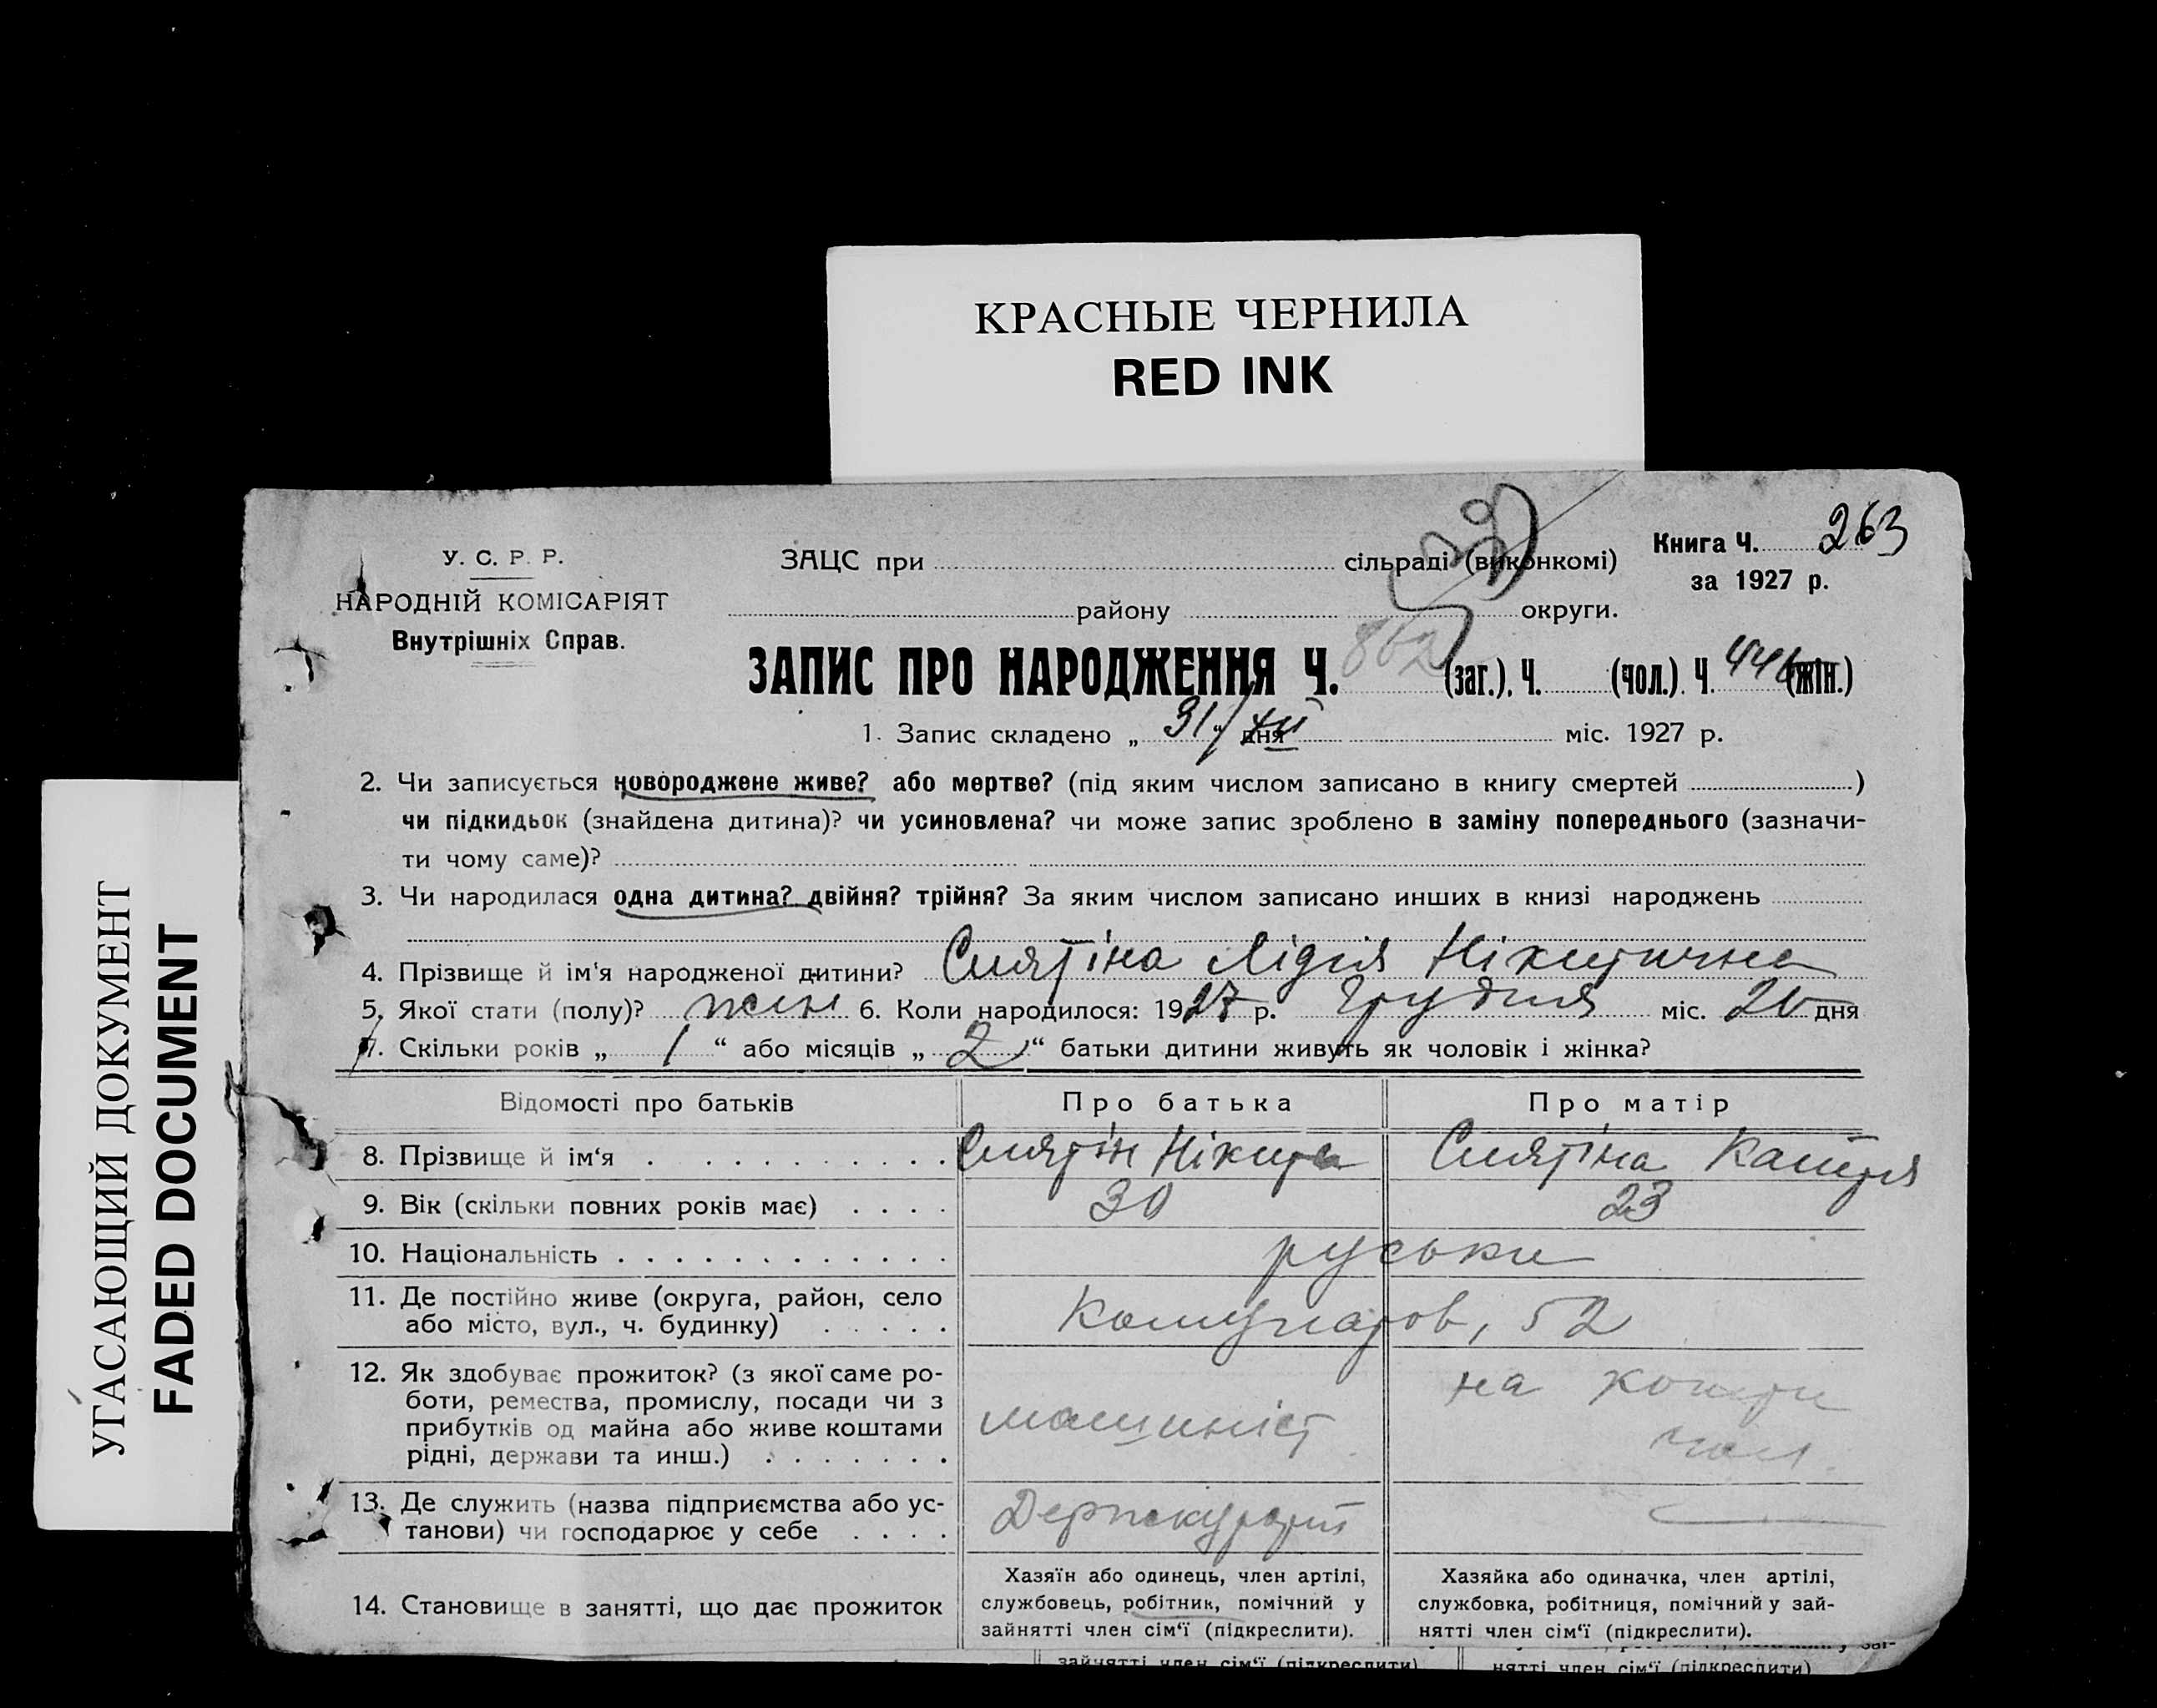 КРАСНЫЕ ЧЕРНИЛА
RED INK
УГАСАЮЩИЙ ДОКУМЕНТ
FADED DOCUMENT
У. С. Р. Р.
НАРОДНІЙ КОМІСАРІЯТ
Внутрішніх Справ.
ЗАЦС при сільраді (виконкомі)
району округи.
Книга Ч. 263
за 1927 р.
ЗАПИС ПРО НАРОДЖЕННЯ Ч. 862 (заг.). Ч. (чол.). Ч. 446 (жін.)
1. Запис складено „ 31/XII дня міс. 1927 р.
2. Чи записується новороджене живе? або мертве? (під яким числом записано в книгу смертей )
чи підкидьок (знайдена дитина)? чи усиновлена? чи може запис зроблено в заміну попереднього (зазначи-
ти чому саме)?
3. Чи народилася одна дитина? двійня? трійня? За яким числом записано инших в книзі народжень
4. Прізвище й ім'я народженої дитини? Лідія Нікитична
5. Якої стати (полу)? жін 6. Коли народилося: 1927 р. Грудня міс. дня
7. Скільки років „ 1 “ або місяців „ 2 “ батьки дитини живуть як чоловік і жінка?
Відомості про батьків Про батька Про матір
8. Прізвище й ім'я Нікита
9. Вік (скільки повних років має) 30 23
10. Національність руські
11. Де постійно живе (округа, район, село
або місто, вул., ч. будинку) Комунаров, 52
12. Як здобуває прожиток? (з якої саме ро-
боти, ремества, промислу, посади чи з
прибутків од майна або живе коштами
рідні, держави та инш.) машиніст на кошти чол.
13. Де служить (назва підприємства або ус-
танови) чи господарює у себе
14. Становище в занятті, що дає прожиток
Хазяїн або одинець, член артілі,
службовець, робітник, помічний у
зайнятті член сім'ї (підкреслити).
Хазяйка або одиначка, член артілі,
службовка, робітниця, помічний у зай-
нятті член сім'ї (підкреслити).
зайнятті член сім'ї (підкреслити)
нятті член сім'ї (підкреслити)